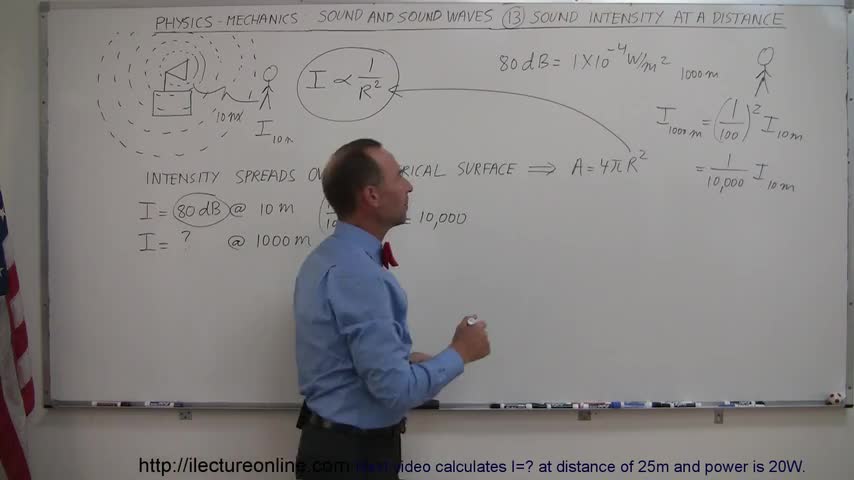 PHYSICS - MECHANICS SOUND AND SOUND WAVES 13 SOUND INTENSITY AT A DISTANCE
10 m
I 10 m
I ∝ 1/R²
80 dB = 1 X 10⁻⁴ W/m² 1000 m
I 1000 m = (1/100)² I 10 m
= 1/10,000 I 10 m
INTENSITY SPREADS SURFACE ⇒ A = 4πR²
I = 80 dB @ 10 m = 10,000
I = ? @ 1000 m
http://ilectureonline.com Next video calculates I=? at distance of 25m and power is 20W.